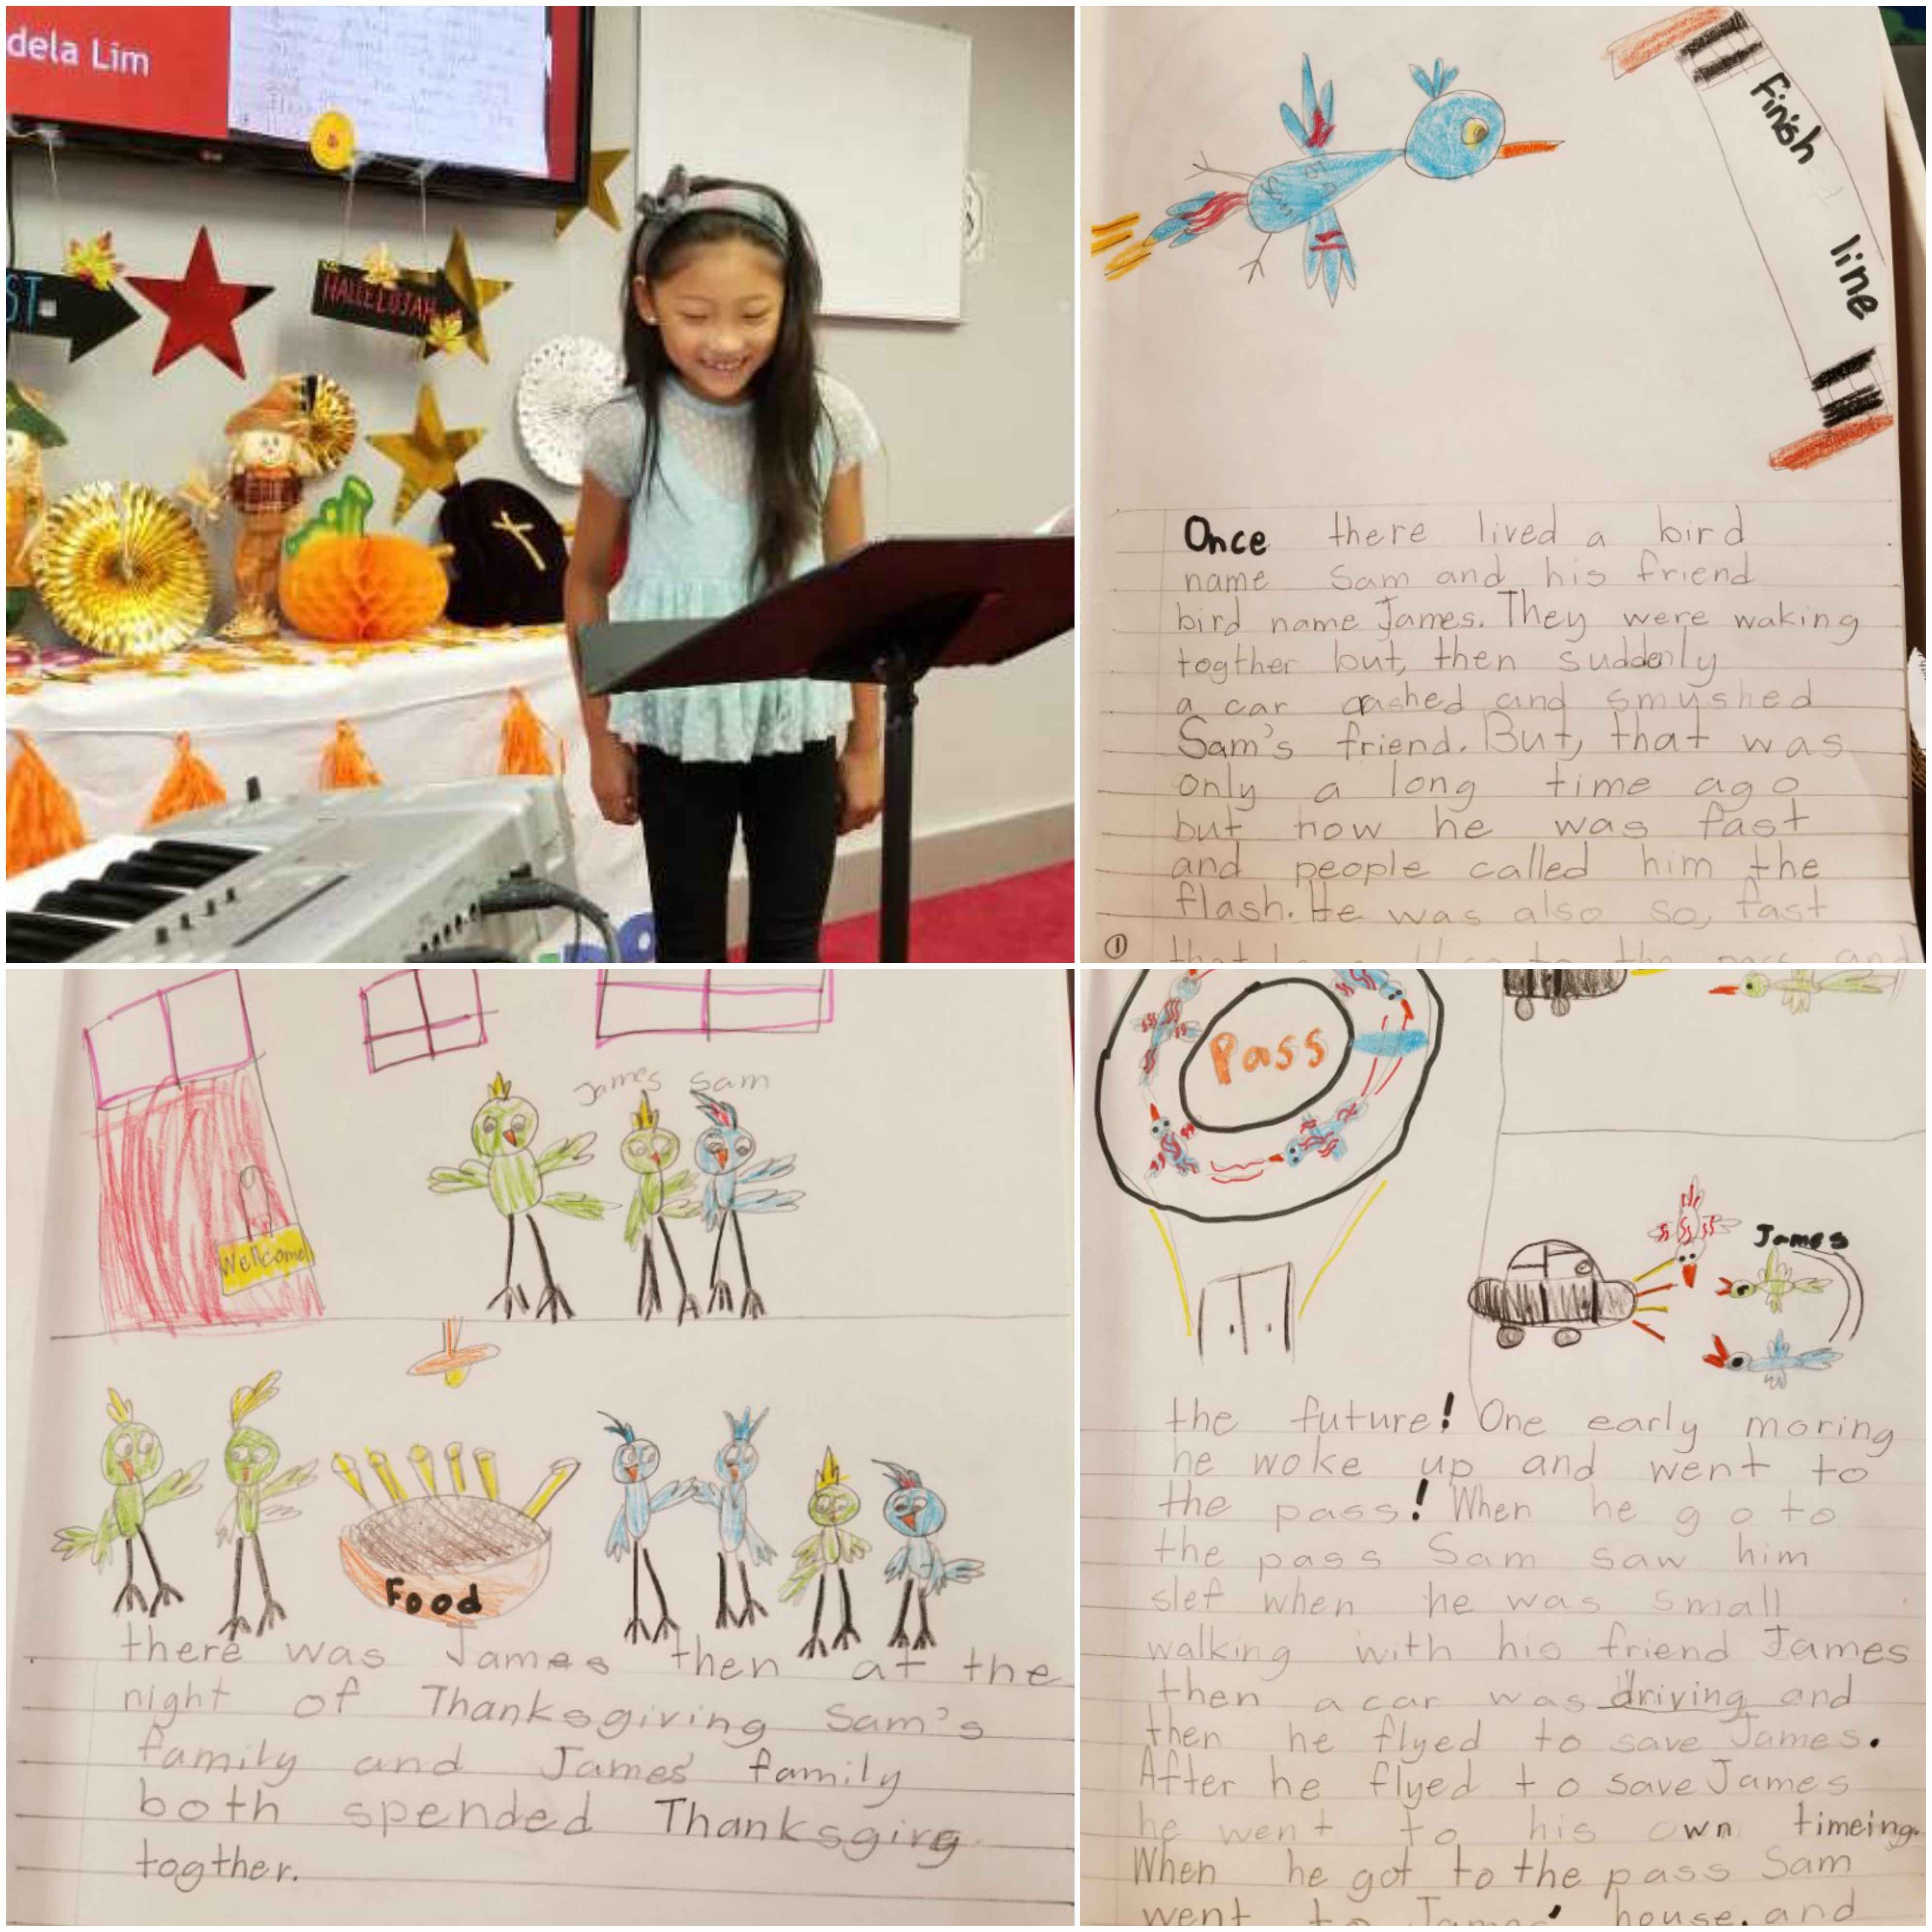 dela Lim
ST
HALLELUJAH
Finish line
Sam
Once there lived a bird
name Sam and his friend
bird name James. They were waking
togther but, then suddenly
a car crashed and smushed
Sam's friend. But, that was
only a long time ago
but now he was fast
and people called him the
flash. He was also so, fast
1
the pass and
James Sam
Wellcome
Food
there was James then at the
night of Thanksgiving Sam's
family and James' family
both spended Thanksgivg
togther.
Pass
James
the future! One early moring
he woke up and went to
the pass! When he go to
the pass Sam saw him
slef when he was small
walking with his friend James
then a car was driving and
then he flyed to save James.
After he flyed to save James
he went to his own timeing.
When he got to the pass Sam
went to James' house, and